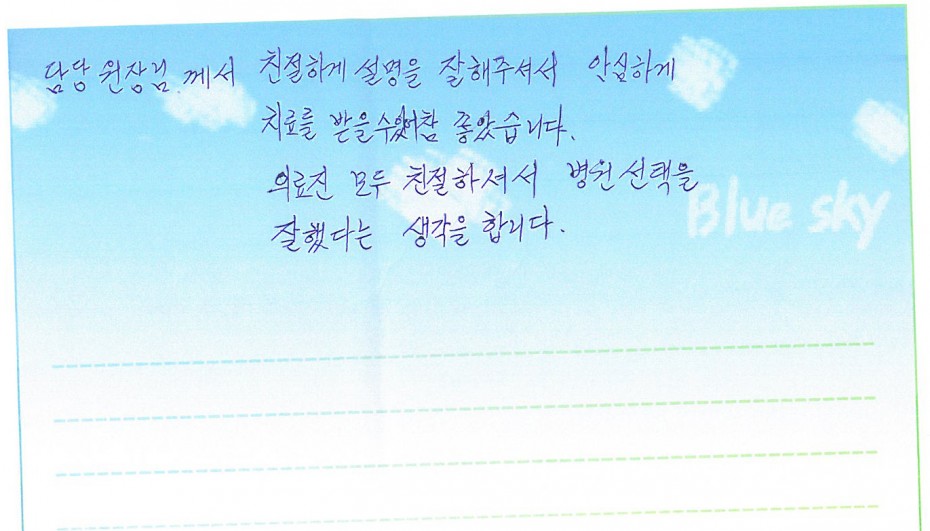 담당 원장님께서 친절하게 설명을 잘해주셔서 안심하게
치료를 받을수있어참 좋았습니다.
의료진 모두 친절하셔서 병원선택을
잘했다는 생각을 합니다.
Blue sky